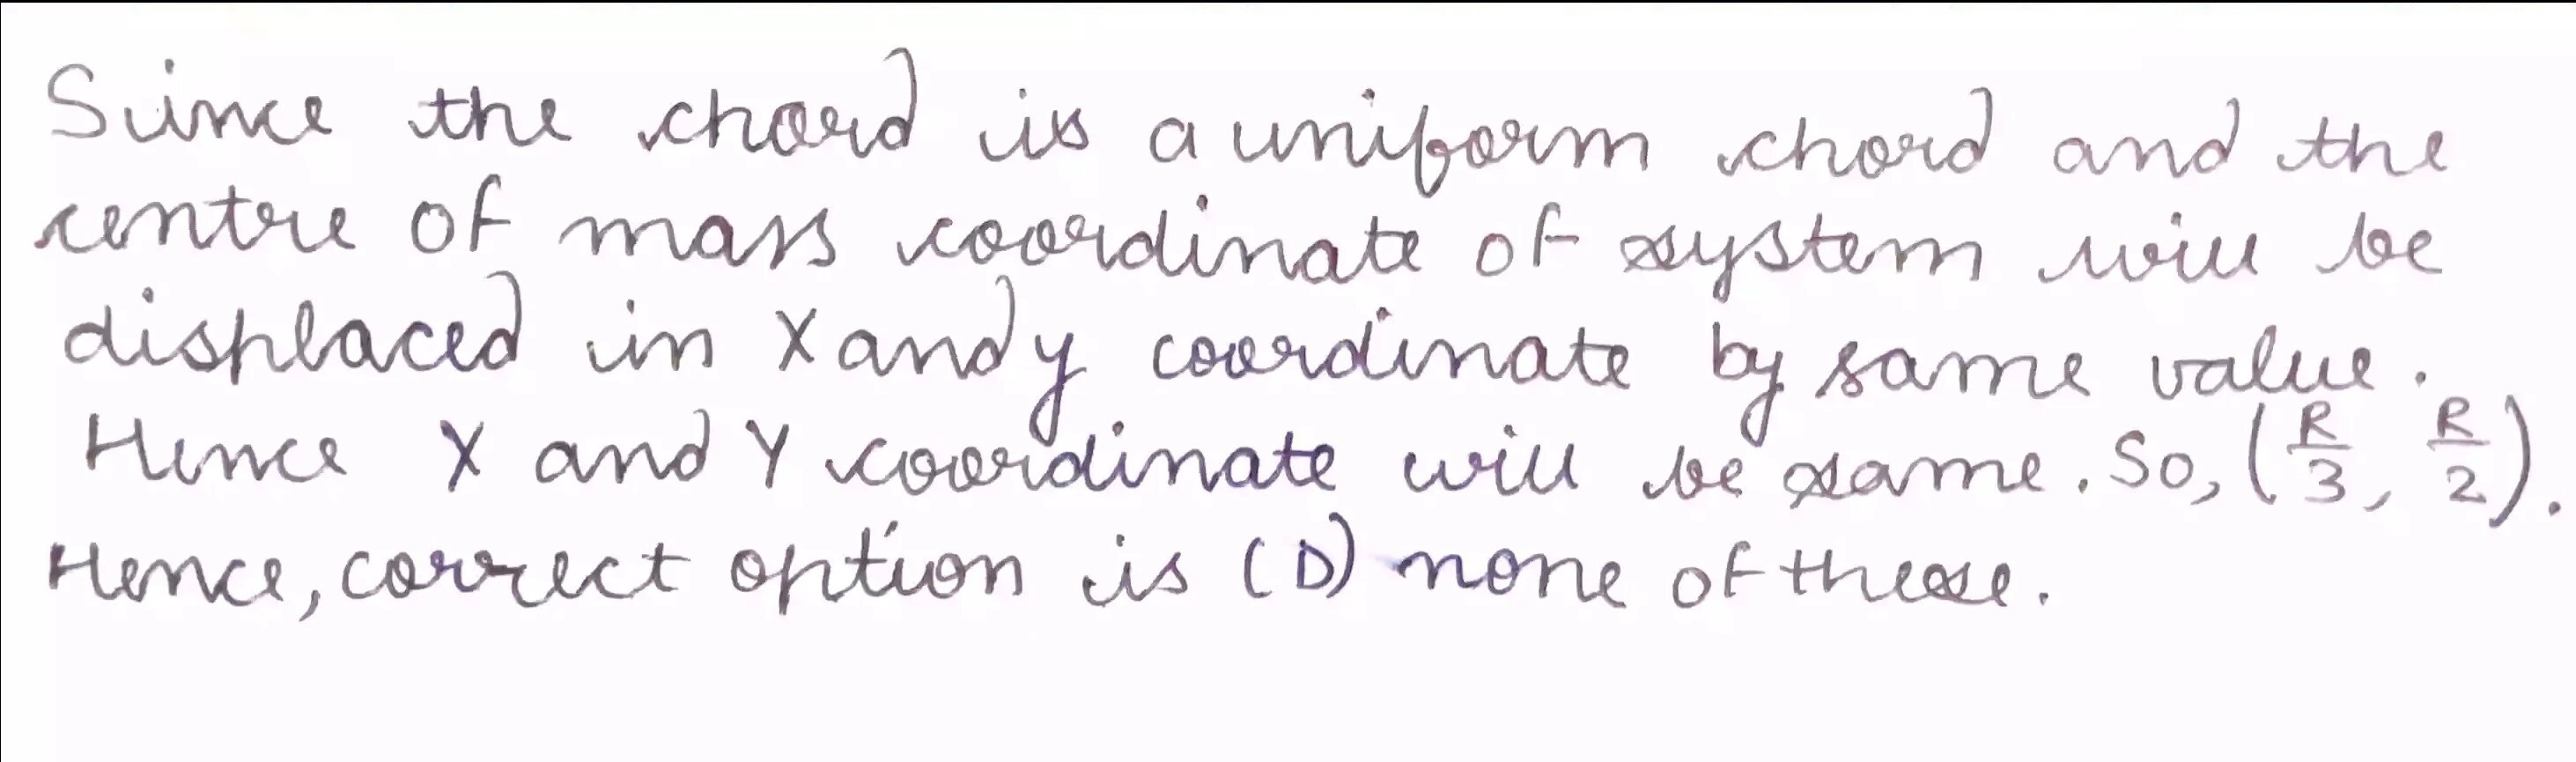 Since the chord is a uniform chord and the
centre of mass coordinate of system will be
displaced in X and y coordinate by same value.
Hence X and Y coordinate will be same. So, (R/3, R/2).
Hence, correct option is (D) none of these.